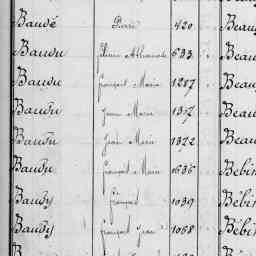 Baudé Pierre 420 Beau
Baudu 633 Beau
Baudu François Marie 1287 Beau
Baudu Jean Marie Beau
Baudu Jean Marie 1322 Beau
Baudu François Marie 1636 Bébi
Baudy François 1039 Bébi
Baudy François Jean 1068 Bébi